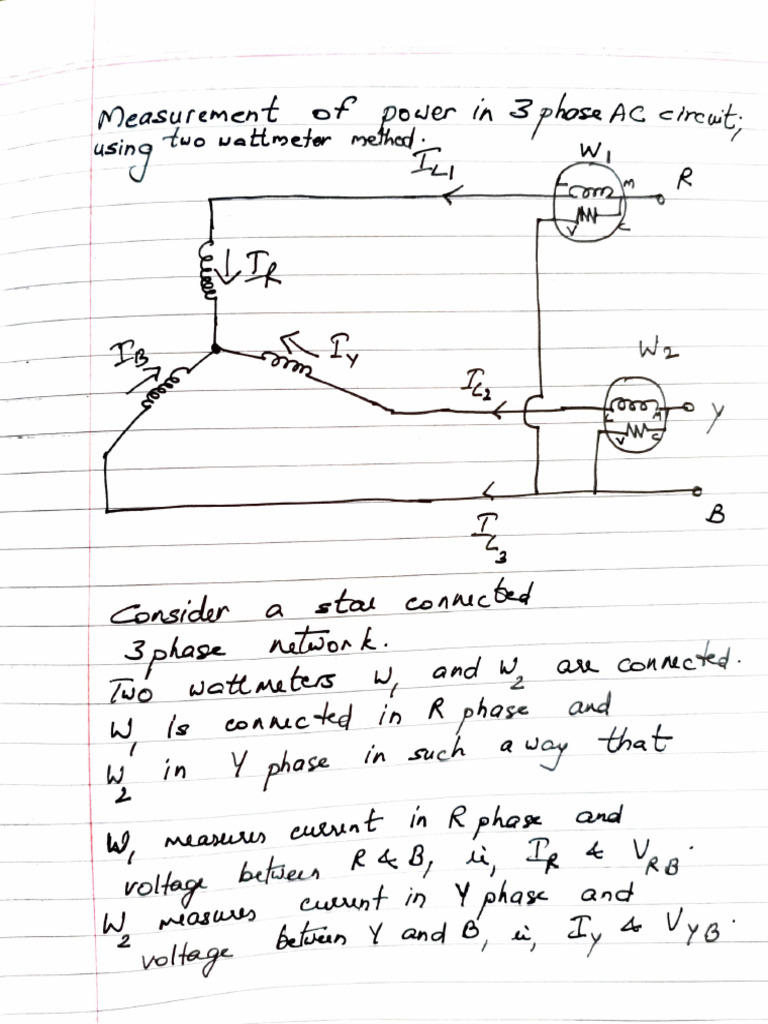 Measurement of power in 3 phase AC circuit,
using two wattmeter method.
W1
IL1
L M R
V C
IR
IB
IY
W2
IL2
L M Y
V C
B
IL3
Consider a star connected
3 phase network.
Two wattmeters W1 and W2 are connected.
W1 is connected in R phase and
W2 in Y phase in such a way that
W1 measures current in R phase and
voltage between R & B, ie, IR & VRB.
W2 measures current in Y phase and
voltage between Y and B, ie, IY & VYB.